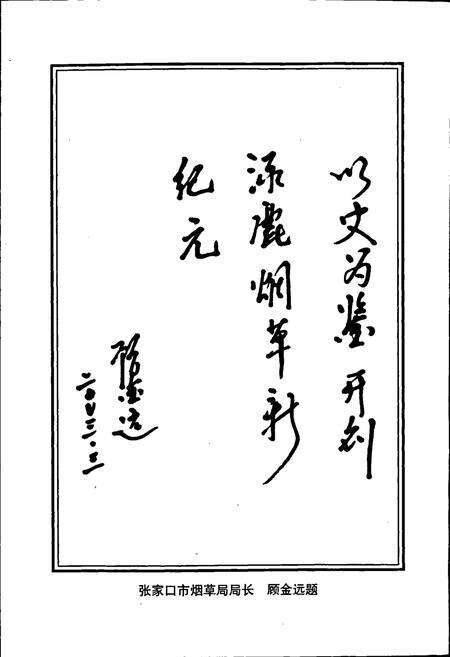 以史为鉴开创
涿鹿烟草新
纪元
顾金远
张家口市烟草局局长 顾金远题